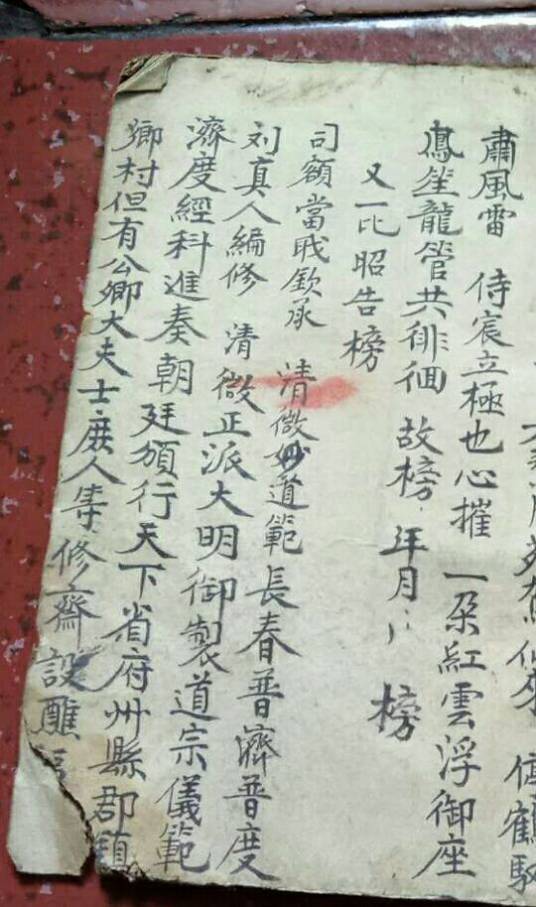 鶴馭
肅風雷 侍宸立極也心摧 一朵紅雲浮御座
鳳笙龍管共徘徊 故榜 年月 榜
又一比昭告榜
司額當職欽承 清微妙道範 長春普濟普度
刘真人編修 清微正派大明御製道宗儀範
濟度經科進奏朝廷頒行天下省府州縣郡鎮
鄉村但有公卿大夫士庶人等修齋設醮